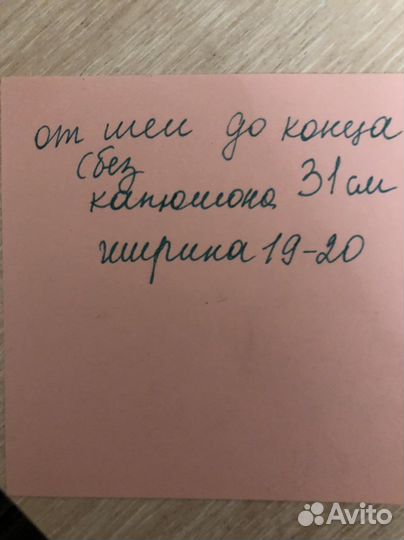 от шеи до конца
(без
капюшона 31 см
ширина 19-20
Avito